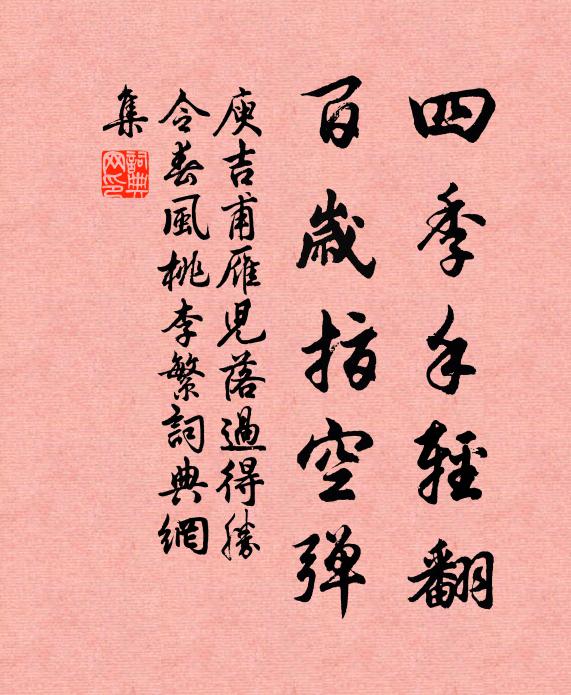 四季手輕翻
百歲指空彈
庾吉甫雁兒落過得勝
令春風桃李繁詞典網
集
詞典
网印